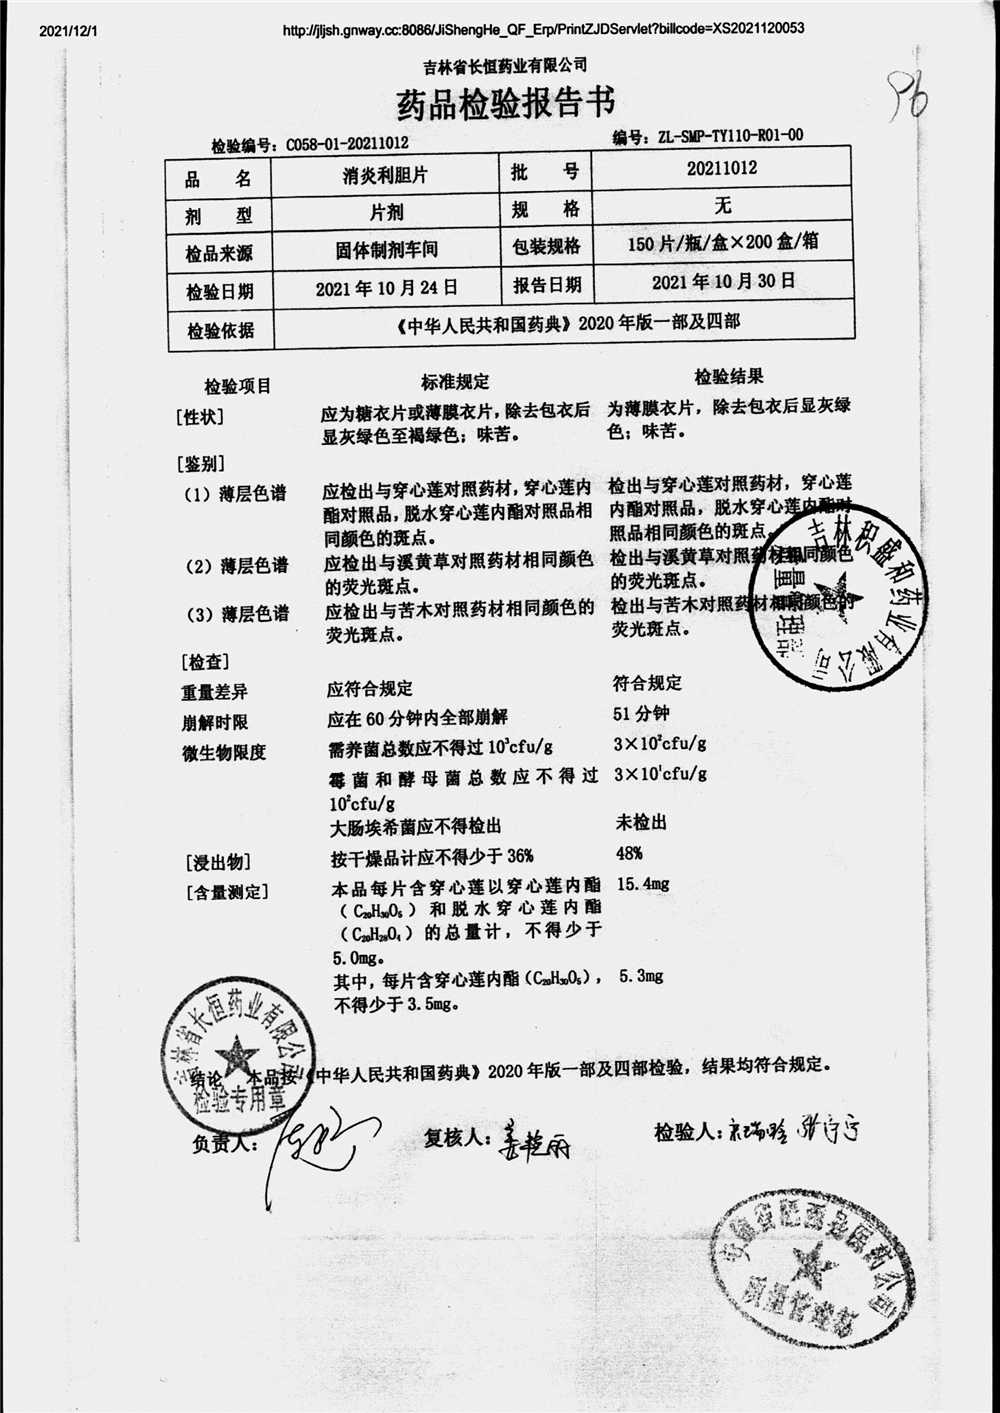 2021/12/1 http://jljsh.gnway.cc:8086/JiShengHe_QF_Erp/PrintZJDServlet?billcode=XS2021120053
吉林省长恒药业有限公司
药品检验报告书
96
检验编号：C058-01-20211012 编号：ZL-SMP-TY110-R01-00
品 名 消炎利胆片 批 号 20211012
剂 型 片剂 规 格 无
检品来源 固体制剂车间 包装规格 150 片/瓶/盒×200 盒/箱
检验日期 2021 年 10 月 24 日 报告日期 2021 年 10 月 30 日
检验依据 《中华人民共和国药典》2020 年版一部及四部
检验项目 标准规定 检验结果
[性状] 应为糖衣片或薄膜衣片，除去包衣后 为薄膜衣片，除去包衣后显灰绿
显灰绿色至褐绿色；味苦。 色；味苦。
[鉴别]
（1）薄层色谱 应检出与穿心莲对照药材，穿心莲内 检出与穿心莲对照药材，穿心莲
酯对照品，脱水穿心莲内酯对照品相 内酯对照品，脱水穿心莲内酯对
同颜色的斑点。 照品相同颜色的斑点。
（2）薄层色谱 应检出与溪黄草对照药材相同颜色 检出与溪黄草对照药材相同颜色
的荧光斑点。 的荧光斑点。
（3）薄层色谱 应检出与苦木对照药材相同颜色的 检出与苦木对照药材相同颜色的
荧光斑点。 荧光斑点。
[检查]
重量差异 应符合规定 符合规定
崩解时限 应在 60 分钟内全部崩解 51 分钟
微生物限度 需养菌总数应不得过 10³cfu/g 3×10²cfu/g
霉菌和酵母菌总数应不得过 3×10¹cfu/g
10²cfu/g
大肠埃希菌应不得检出 未检出
[浸出物] 按干燥品计应不得少于 36% 48%
[含量测定] 本品每片含穿心莲以穿心莲内酯 15.4mg
（C₂₀H₃₀O₅）和脱水穿心莲内酯
（C₂₀H₂₈O₄）的总量计，不得少于
5.0mg。
其中，每片含穿心莲内酯（C₂₀H₃₀O₅）， 5.3mg
不得少于 3.5mg。
结论：本品按《中华人民共和国药典》2020 年版一部及四部检验，结果均符合规定。
负责人： 复核人：姜艳丽 检验人：
吉林积盛和药业有限公司
质量管理部
吉林省长恒药业有限公司
检验专用章
安徽省肥西县医药公司
质量管理部